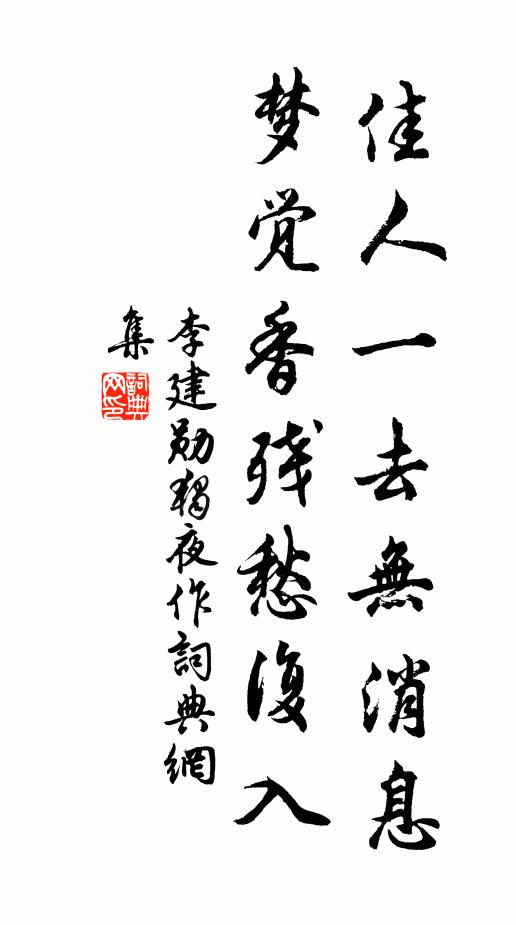 佳人一去無消息
梦觉香残愁復入
李建勋獨夜作詞典網
集
詞典网印